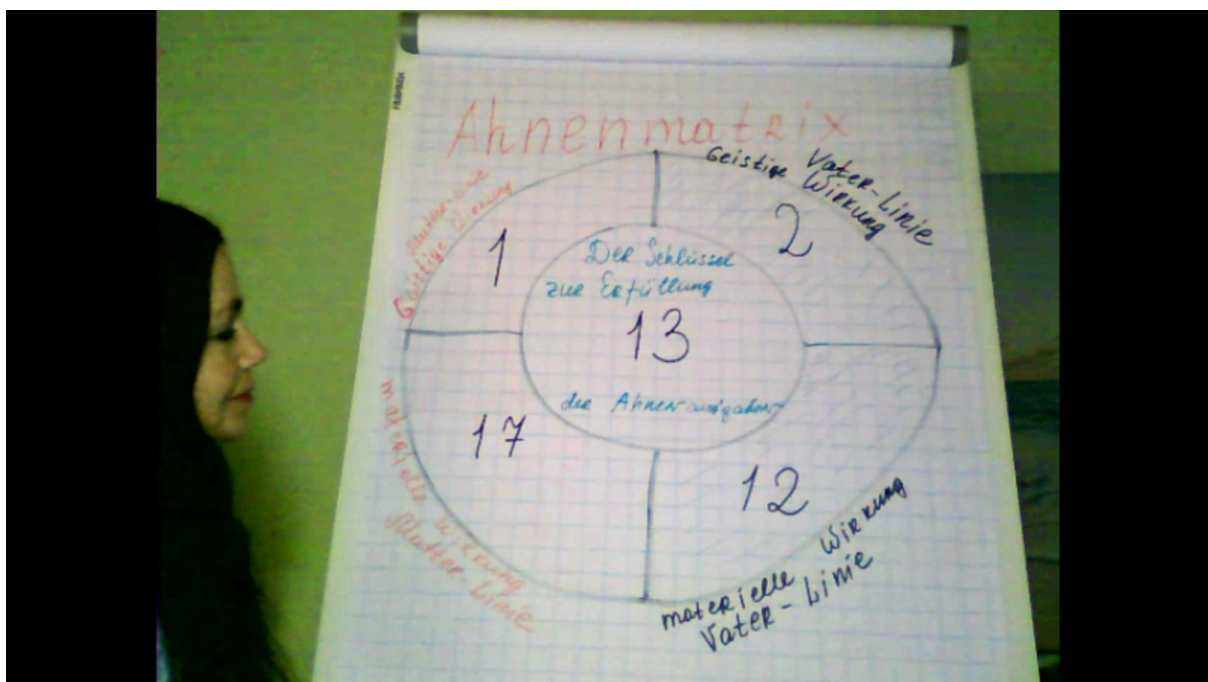 Ahnenmatrix
Mutter-Linie
Geistige Wirkung
1
Vater-Linie
Geistige Wirkung
2
Der Schlüssel
zur Erfüllung
13
der Ahnenaufgaben
17
materielle Wirkung
Mutter-Linie
12
materielle Wirkung
Vater-Linie